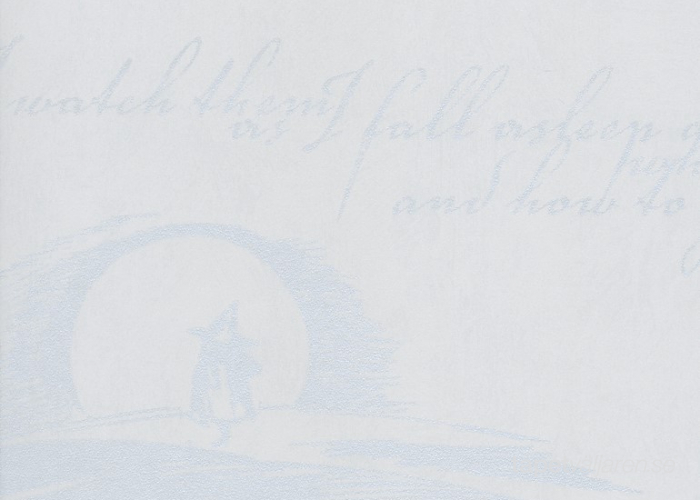 I watch them
as I fall asleep
and how to